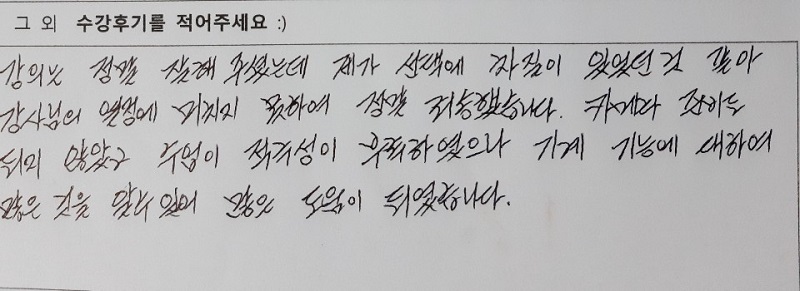 그 외 수강후기를 적어주세요 :)
강의는 정말 잘해 주셨는데 제가 선택에 차질이 있었던 것 같아
강사님의 열정에 미치지 못하여 정말 죄송했습니다.
되지 않았고 수업이 적극성이 하였으나 기계 기능에 대하여
많은 것을 알수 있어 많은 도움이 되었습니다.